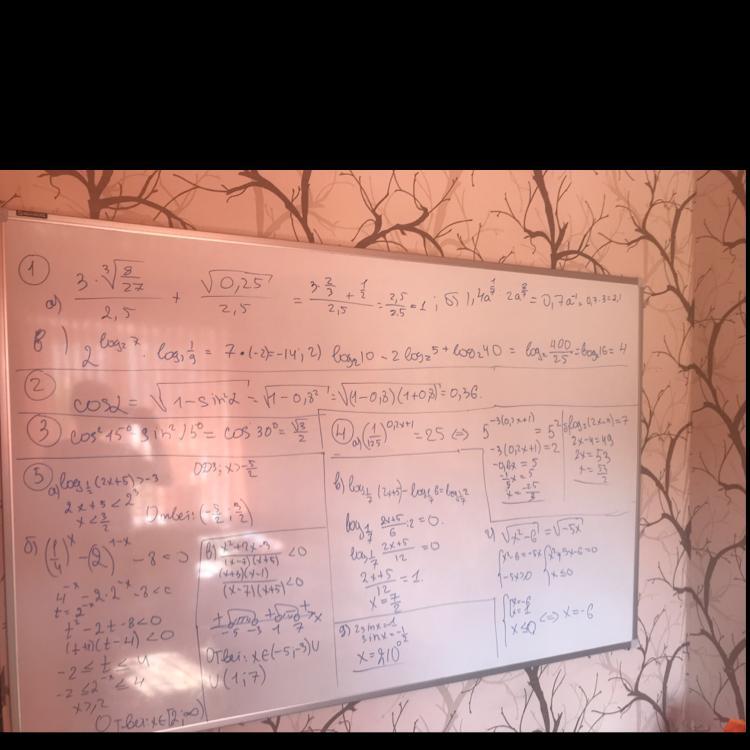 1
а) (3·∛(8/27))/2,5 + √0,25/2,5 = (3·2/3 + 1/2)/2,5 = 2,5/2,5 = 1; б) 1,4a 2a = 0,7a = 0,7·3 = 2,1
в) 2^(log₂7) · log₃ 1/9 = 7·(-2) = -14; г) log₂10 - 2log₂5 + log₂40 = log₂ 400/25 = log₂16 = 4
2 cosα = √(1-sin²α) = √(1-0,8²) = √((1-0,8)(1+0,8)) = 0,36.
3 cos²15° - sin²15° = cos 30° = √3/2
4 а) (1/125)^(0,2x+1) = 25 ⇔ 5^(-3(0,2x+1)) = 5²
-3(0,2x+1) = 2
-0,6x = 5
x = -25/3
(2x-4) = 7
2x-4 = 49
2x = 53
x = 53/2
в) log_(1/7) (2x+5) - log_(1/7) 6 = log_(1/7) 2
log_(1/7) (2x+5)/6·2 = 0.
log_(1/7) (2x+5)/12 = 0
(2x+5)/12 = 1.
x = 7/2
г) √(x²-6) = √(-5x)
{x²-6 = -5x {x²+5x-6 = 0
-5x ≥ 0 x ≤ 0
{x = -6 x = 1
x ≤ 0 ⇔ x = -6
д) 2sinx = 1
sinx = -1/2
x = 210°
5 а) log_(1/2) (2x+5) > -3 ОДЗ: x > -5/2
2x+5 < 2³
x < 3/2 Ответ: (-5/2; 3/2)
б) (1/4)^x - (2)^(1-x) - 8 < 0
4^(-x) - 2·2^(-x) - 8 < 0
t = 2^(-x)
t² - 2t - 8 < 0
(t-4) < 0
-2 ≤ t ≤ 4
-2 ≤ 2^(-x) ≤ 4
x ≥ -2
Ответ: x∈[2; ∞)
в) (x²+2x-3)/((x-7)(x+5)) < 0
((x+3)(x-1))/((x-7)(x+5)) < 0
-5 -3 1 7 x
Ответ: x∈(-5;-3)∪
∪(1;7)